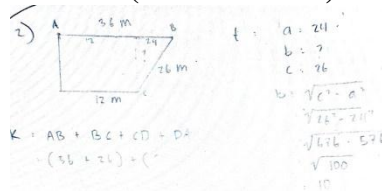 2) A 36 m B
12 24
?
26 m
12 m C
t a = 24
b : ?
c : 26
b = √c² - a²
√26² - 24²
√676 - 576
√100
10
K = AB + BC + CD + DA
= (36 + 26) + (